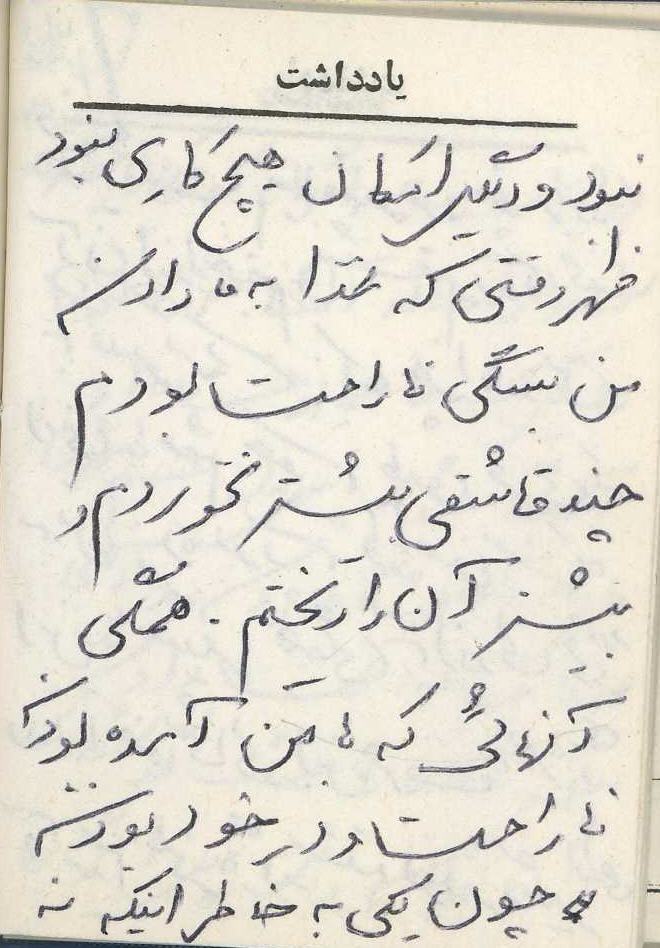 یادداشت
نبود و دیگر امکان هیچ کاری نبود
ظهر وقتی که غذا به ما دادند
من بسگی ناراحت بودم
چند قاشقی بیشتر نخوردم و
بیشتر آن را ریختم. همگی
آنهائی که با من آمده بودند
ناراحت و در خود بودند
چون یکی به خاطر اینکه نه